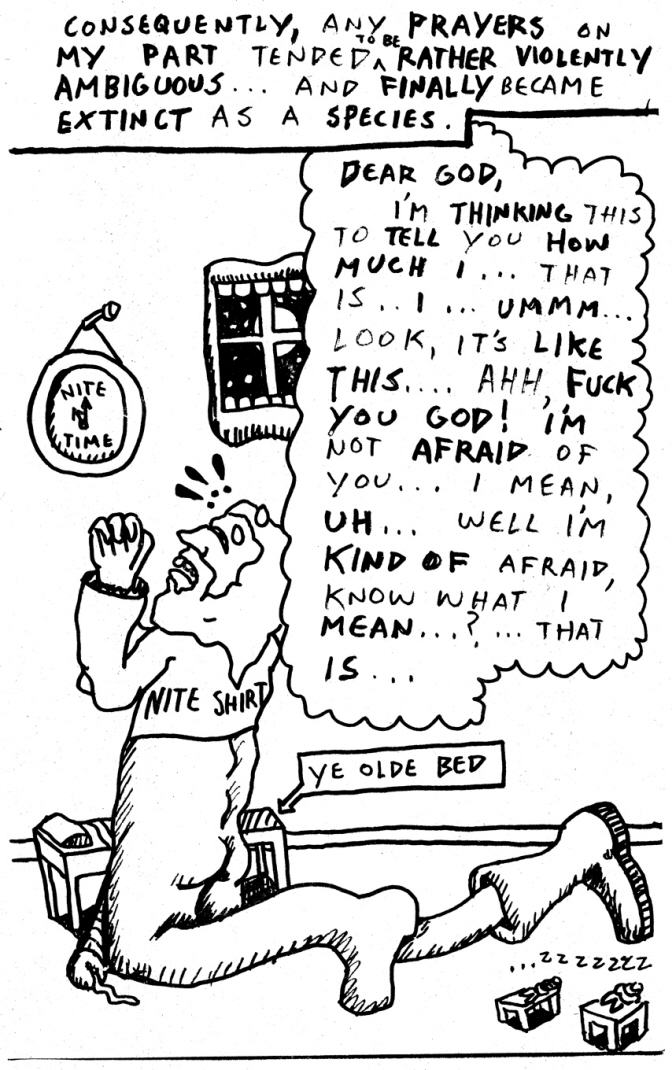 CONSEQUENTLY, ANY PRAYERS ON
MY PART TENDED TO BE RATHER VIOLENTLY
AMBIGUOUS... AND FINALLY BECAME
EXTINCT AS A SPECIES.
DEAR GOD,
I'M THINKING THIS
TO TELL YOU HOW
MUCH I... THAT
IS.. I... UMMM...
LOOK, IT'S LIKE
THIS.... AHH, FUCK
YOU GOD! I'M
NOT AFRAID OF
YOU... I MEAN,
UH... WELL I'M
KIND OF AFRAID,
KNOW WHAT I
MEAN...? ... THAT
IS...
NITE
TIME
!!!
NITE SHIRT
YE OLDE BED
...ZZZZZZZ